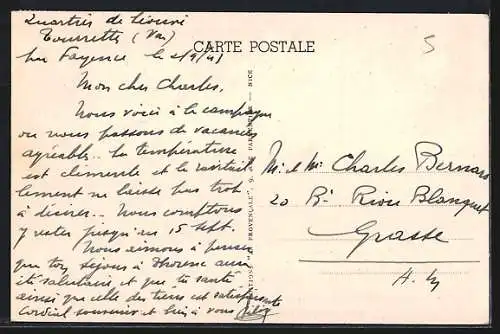 Quartier de
Tourrettes (Var)
par Fayence le 2/9/41
CARTE POSTALE
Mon cher Charles,
Nous voici à la campagne
ou nous passons de vacances
agréables. La température
est clemente et le ravitail
lement ne laisse pas trop
à désirer.. Nous comptons
y rester jusqu'au 15 Sept.
Nous aimons à penser
que ton séjour à Thorenc aura
été salutaire et que ta santé
ainsi que celle des tiens est satisfaisante
Cordial souvenir et bien à vous
Mr et Me Charles Bernard
20 Bd Riou Blanquet
Grasse
A. M
NICE
5